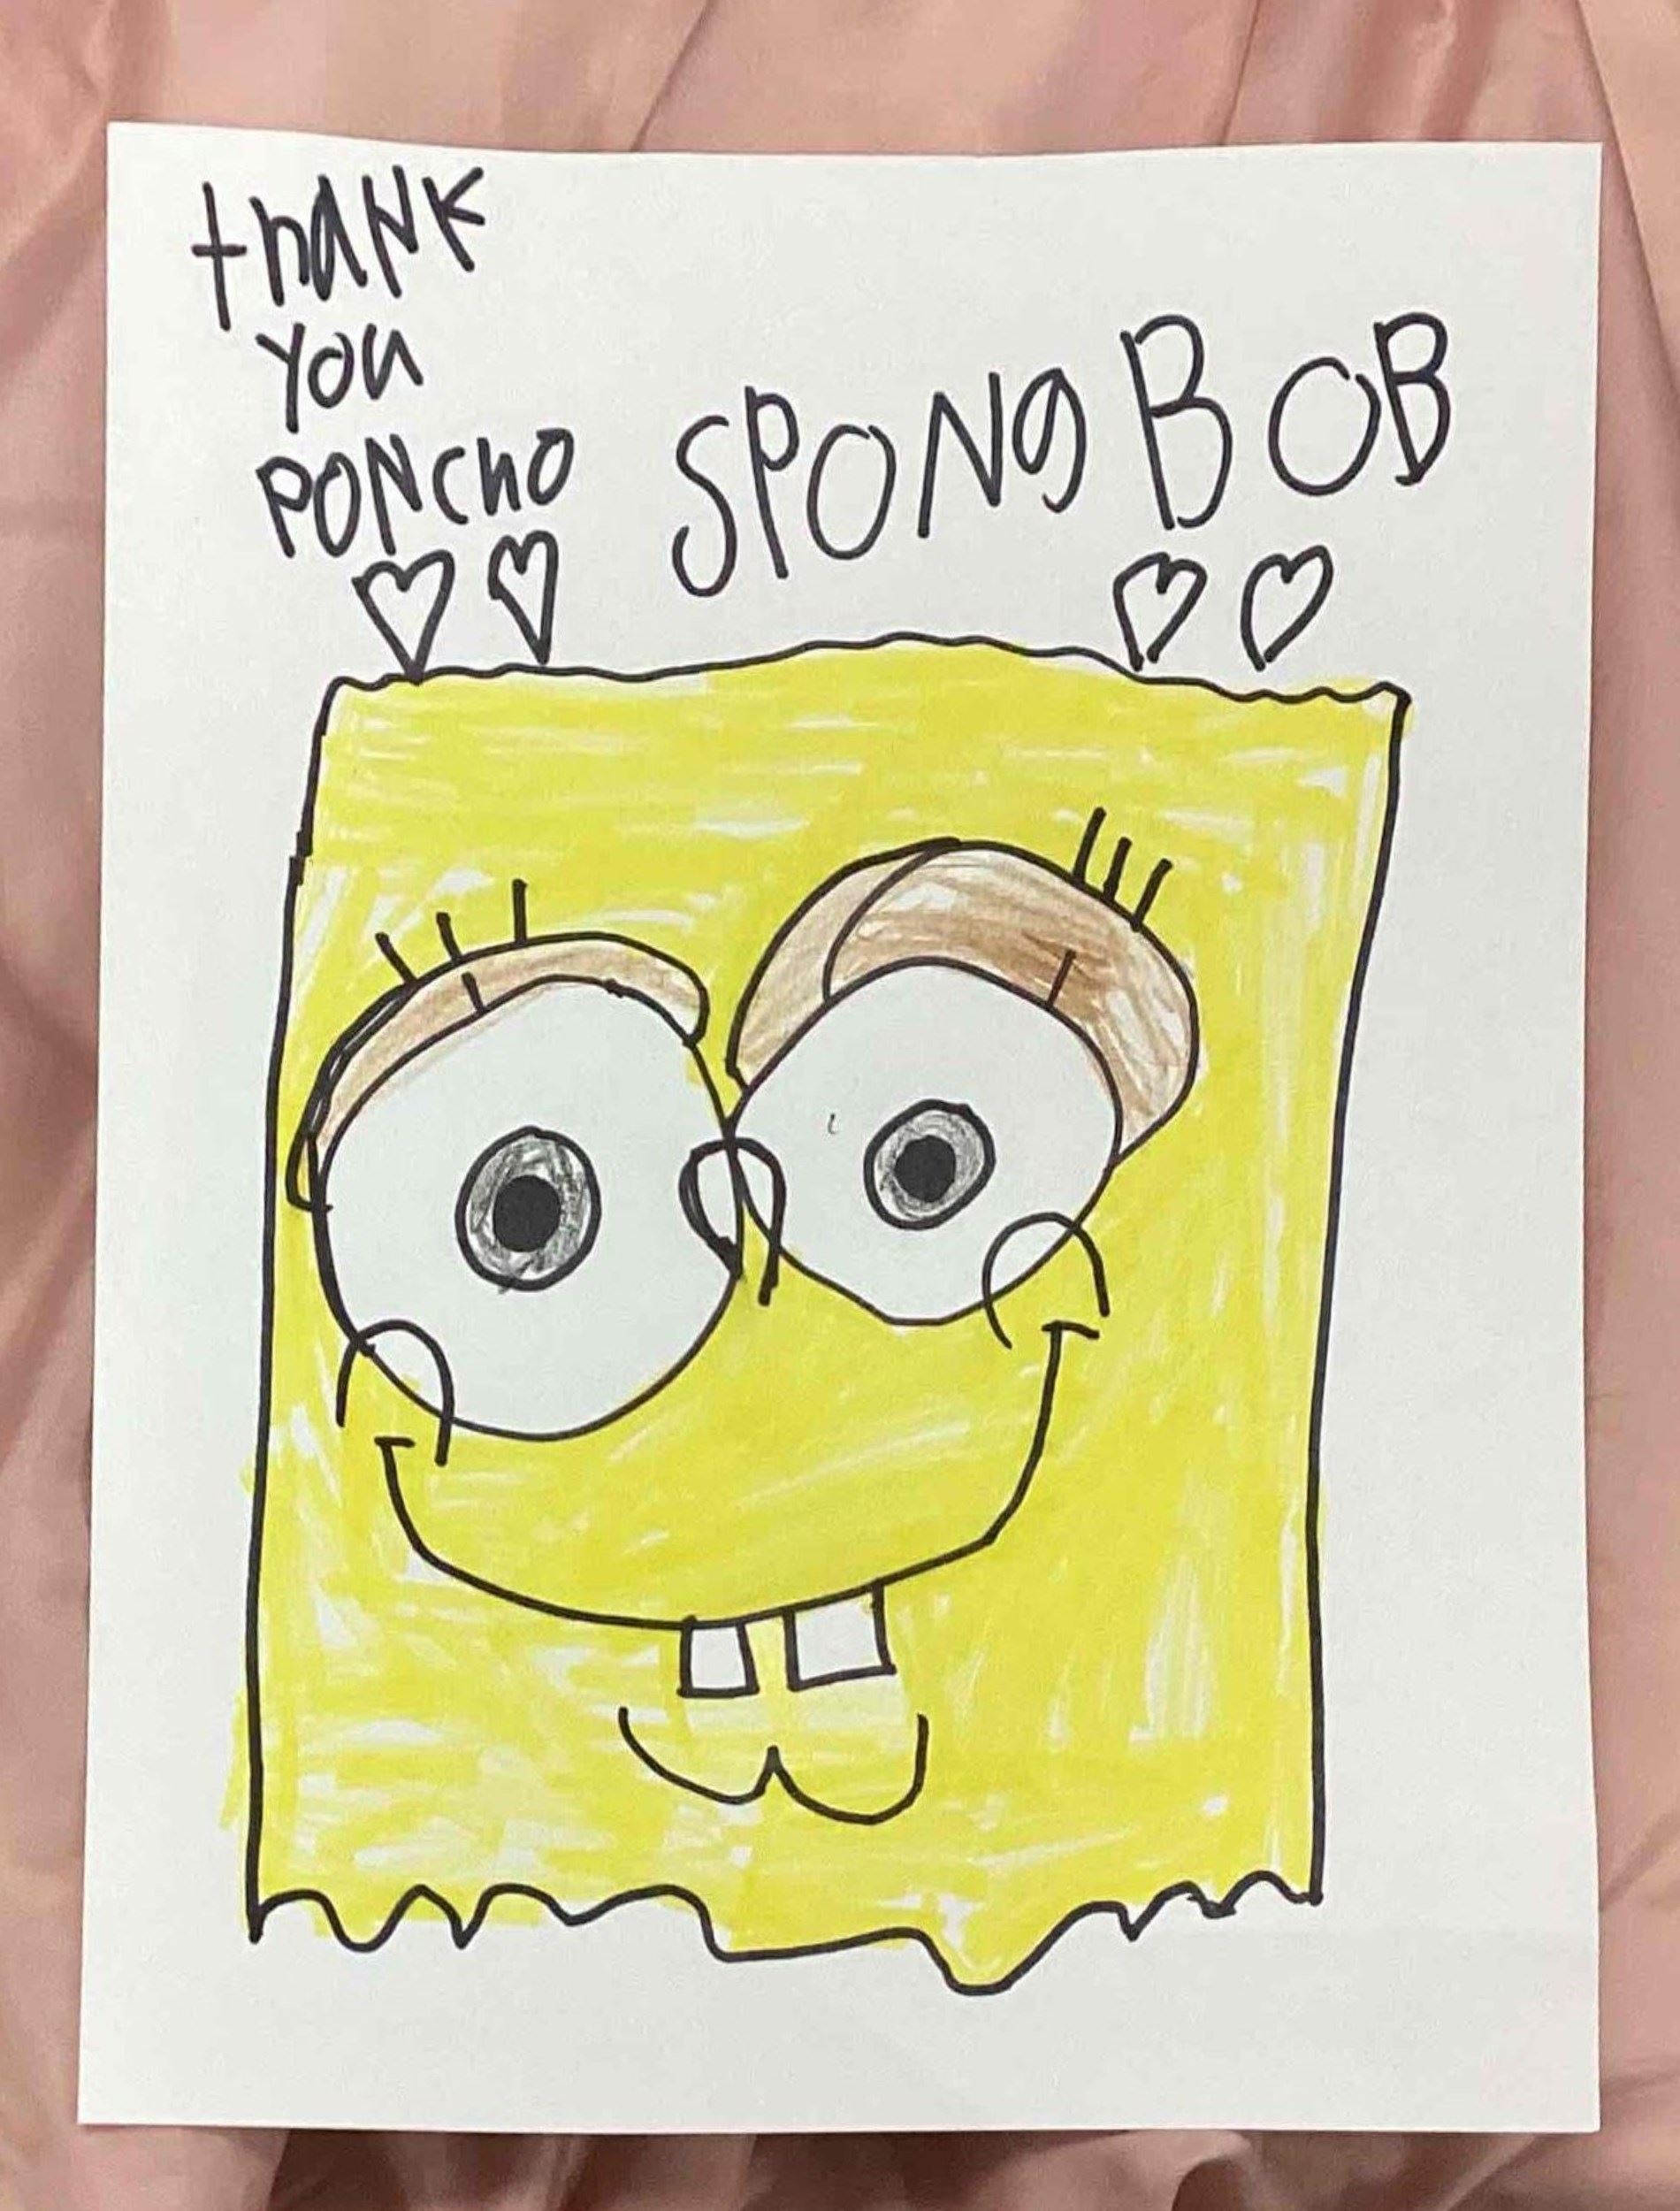 thANK
YOU
PONCHO
SPONg BOB